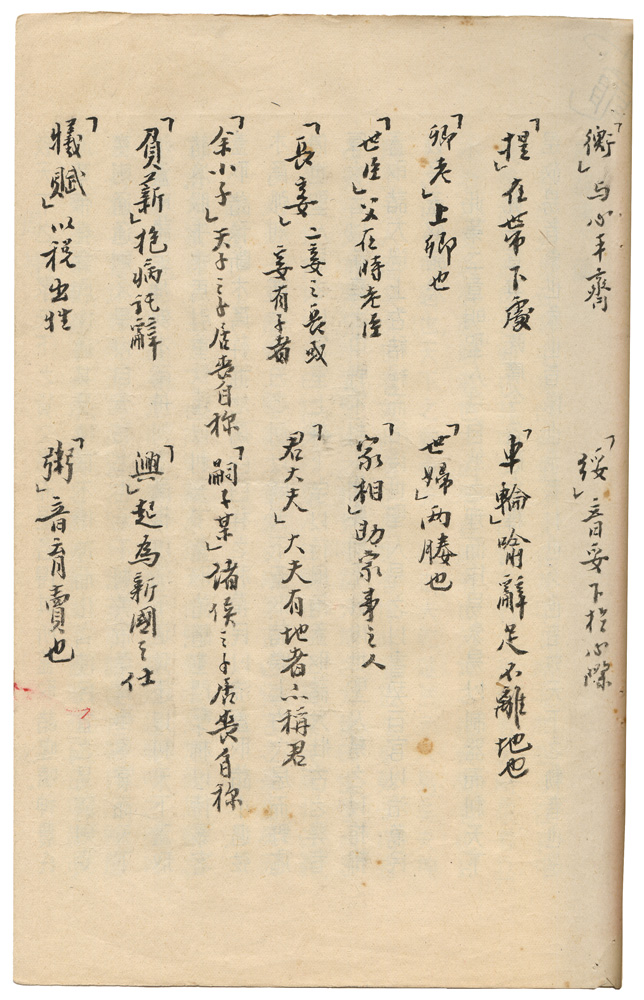 「衡」与心平齊
「綏」音妥下於心際
「提」在带下處
「車輪」喻辭足不離地也
「卿老」上卿也
「世婦」两媵也
「世臣」父在時老臣
「家相」助家事之人
「長妾」二妾之長或妾有子者
「君大夫」大夫有地者亦稱君
「余小子」天子之子居喪自称
「嗣子某」諸侯之子居喪自称
「負薪」抱病託辭
「興」起為新國之仕
「犧賦」以税出牲
「粥」音育賣也